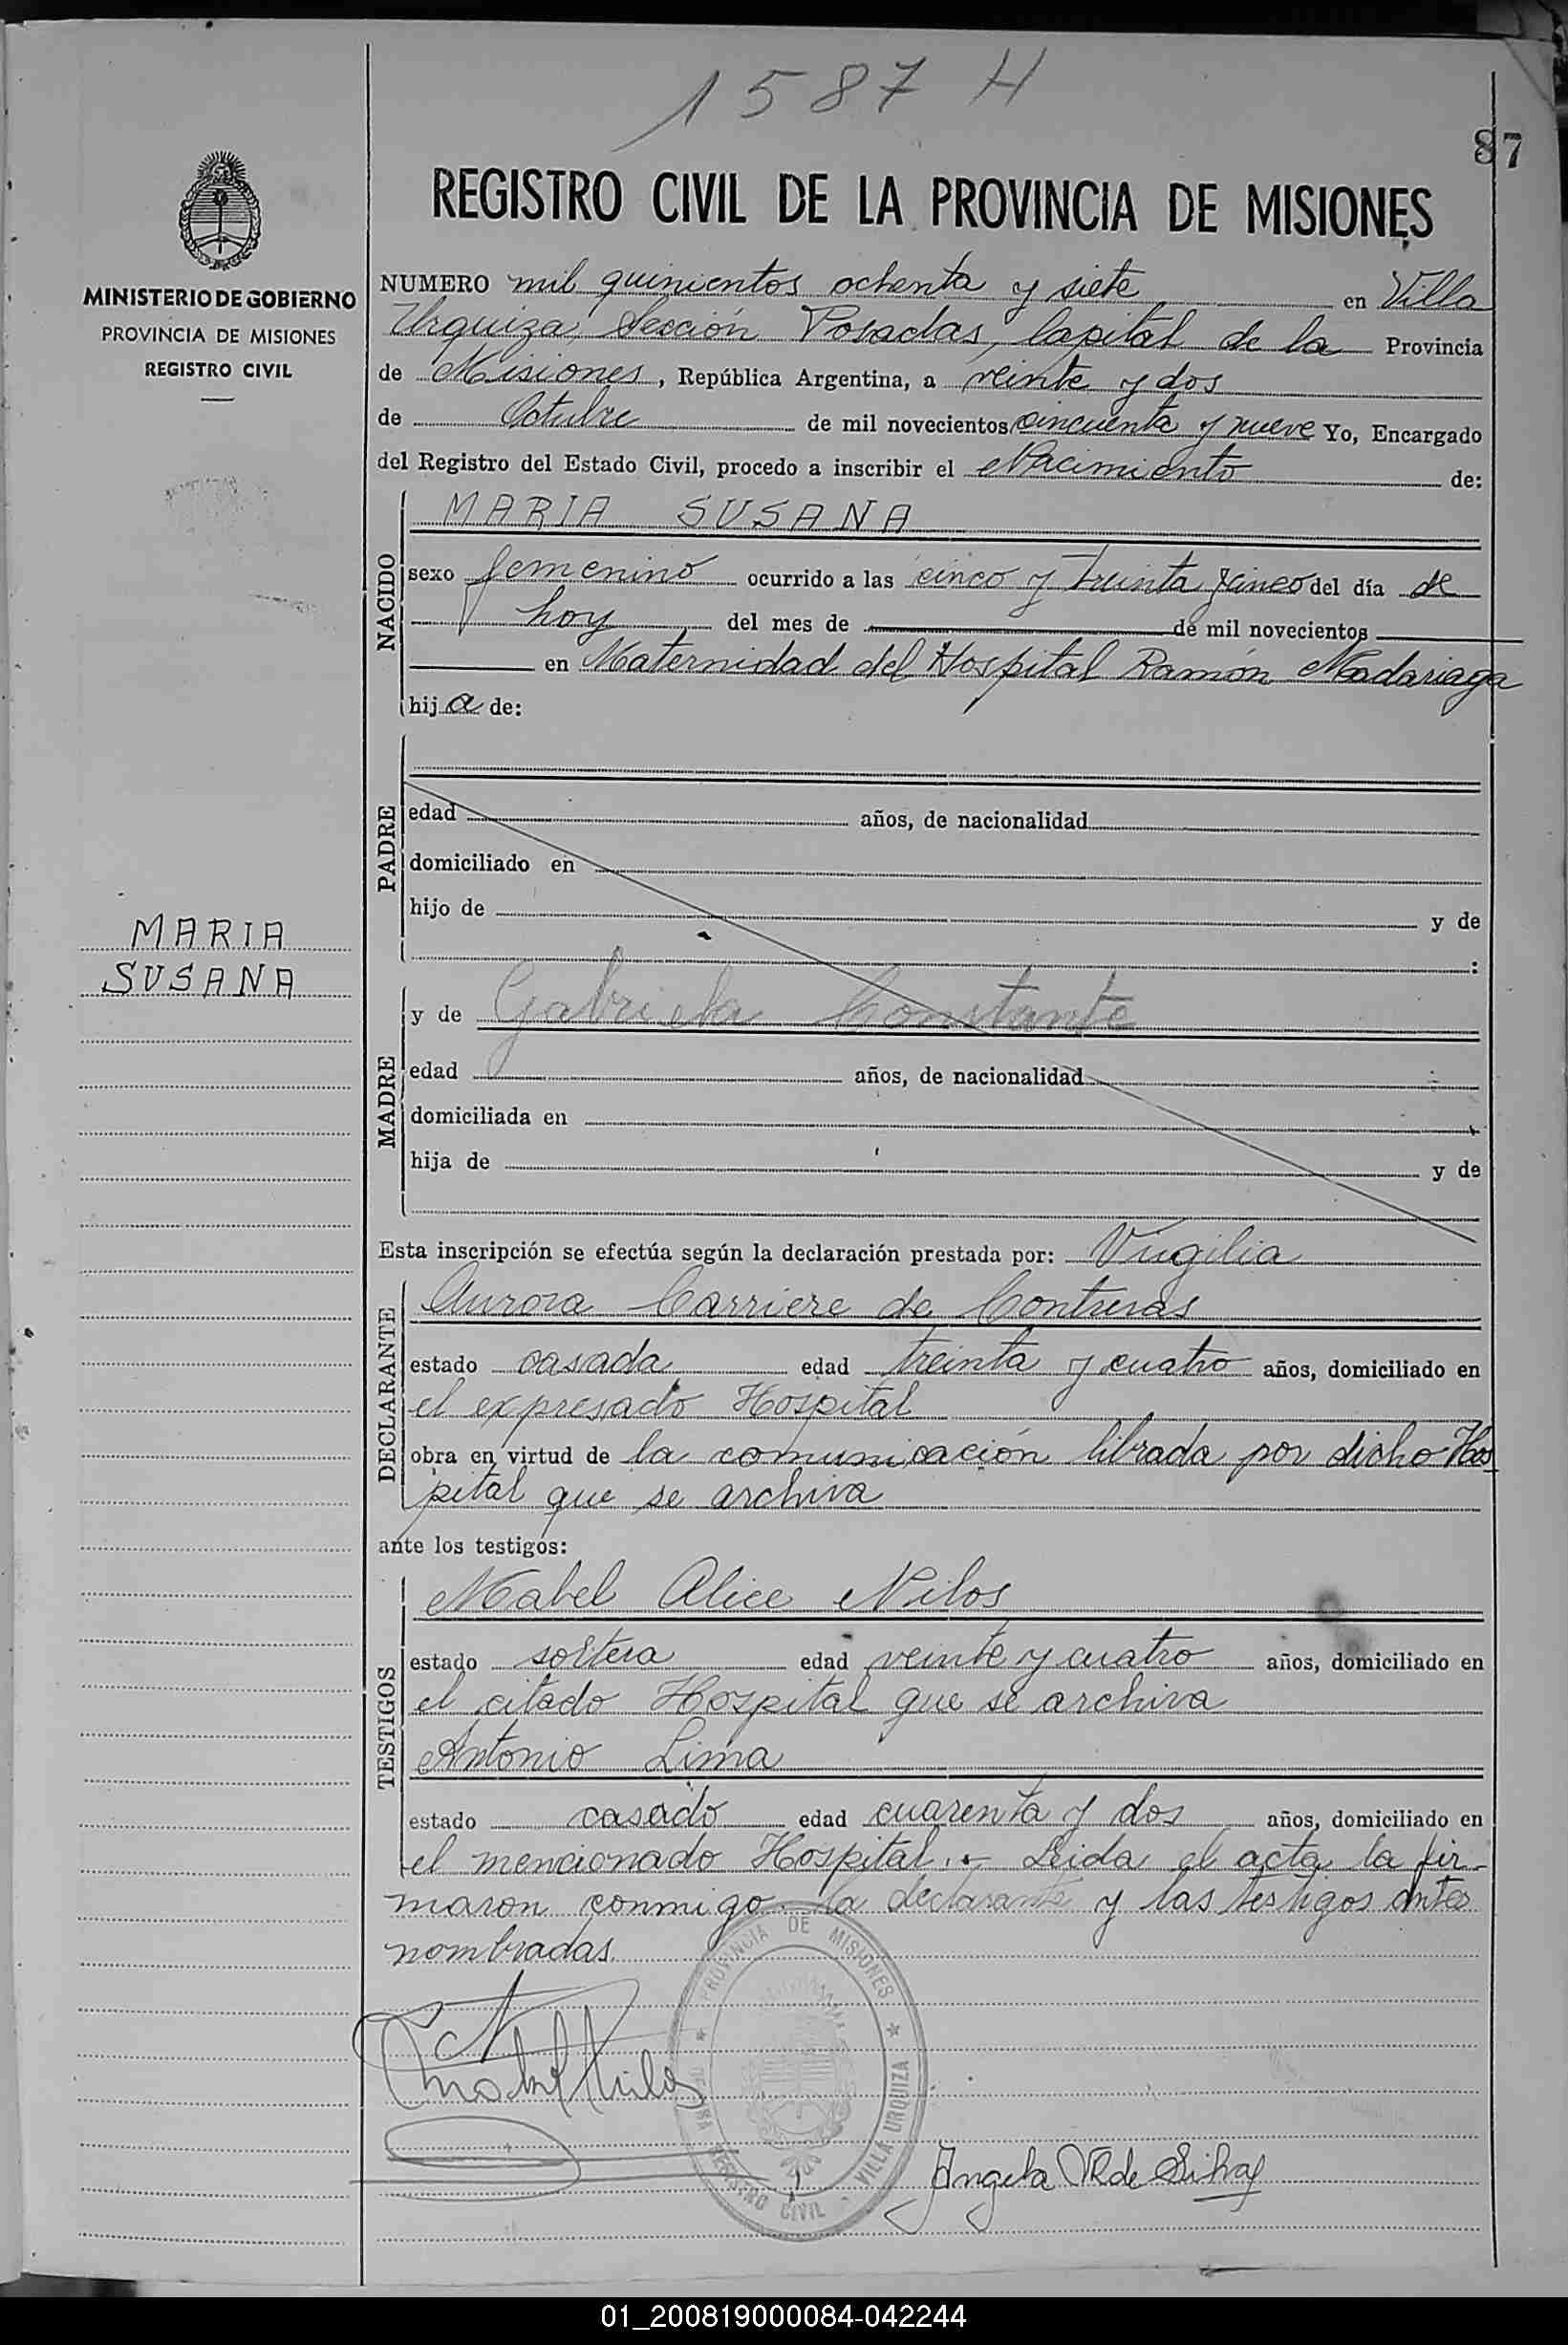 1587 H
87
REGISTRO CIVIL DE LA PROVINCIA DE MISIONES
MINISTERIO DE GOBIERNO
PROVINCIA DE MISIONES
REGISTRO CIVIL
MARIA
SUSANA
NUMERO mil quinientos ochenta y siete en Villa
Urquiza, Sección Posadas, Capital de la Provincia
de Misiones, República Argentina, a veinte y dos
de Octubre de mil novecientos cincuenta y nueve Yo, Encargado
del Registro del Estado Civil, procedo a inscribir el Nacimiento de:
NACIDO
MARIA SUSANA
sexo femenino ocurrido a las cinco y treinta y cinco del día de
hoy del mes de de mil novecientos
en Maternidad del Hospital Ramón Madariaga
hija de:
PADRE
edad años, de nacionalidad
domiciliado en
hijo de y de
:
MADRE
y de Gabriela Constante
edad años, de nacionalidad
domiciliada en
hija de y de
Esta inscripción se efectúa según la declaración prestada por: Virgilia
DECLARANTE
Aurora Carriere de Contreras
estado casada edad treinta y cuatro años, domiciliado en
el expresado Hospital
obra en virtud de la comunicación librada por dicho Hos
pital que se archiva
ante los testigos:
TESTIGOS
Mabel Alice Nilos
estado soltera edad veinte y cuatro años, domiciliado en
el citado Hospital que se archiva
Antonio Lima
estado casado edad cuarenta y dos años, domiciliado en
el mencionado Hospital.- Leida el acta la fir-
maron conmigo la declarante y las testigos antes
nombradas.
PROVINCIA DE MISIONES
REGISTRO CIVIL - VILLA URQUIZA
Angela V. de Silva
01_200819000084-042244